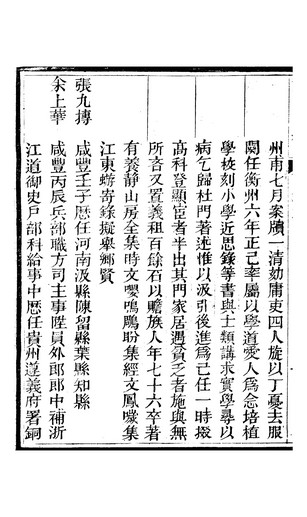 州甫七月案牘一清劾庸吏四人旋以丁憂去服
闋任衡州六年正己率屬以學道愛人為念培植
學校刻小學近思錄等書與士類講求實學尋以
病乞歸杜門著述惟以汲引後進為己任一時掇
高科登顯宦者半出其門家居遇貧乏者施與無
所吝又置義租百餘石以贍族人年七十六卒著
有養靜山房全集時文嚶鳴鴈盼集經文鳳噦集
江東螃寄錄擬舉鄉賢
張九搏 咸豐壬子歷任河南汲縣陳留縣葉縣知縣
余上華 咸豐丙辰兵部職方司主事陞員外郎郎中補浙
江道御史戶部科給事中歷任貴州遵義府署銅